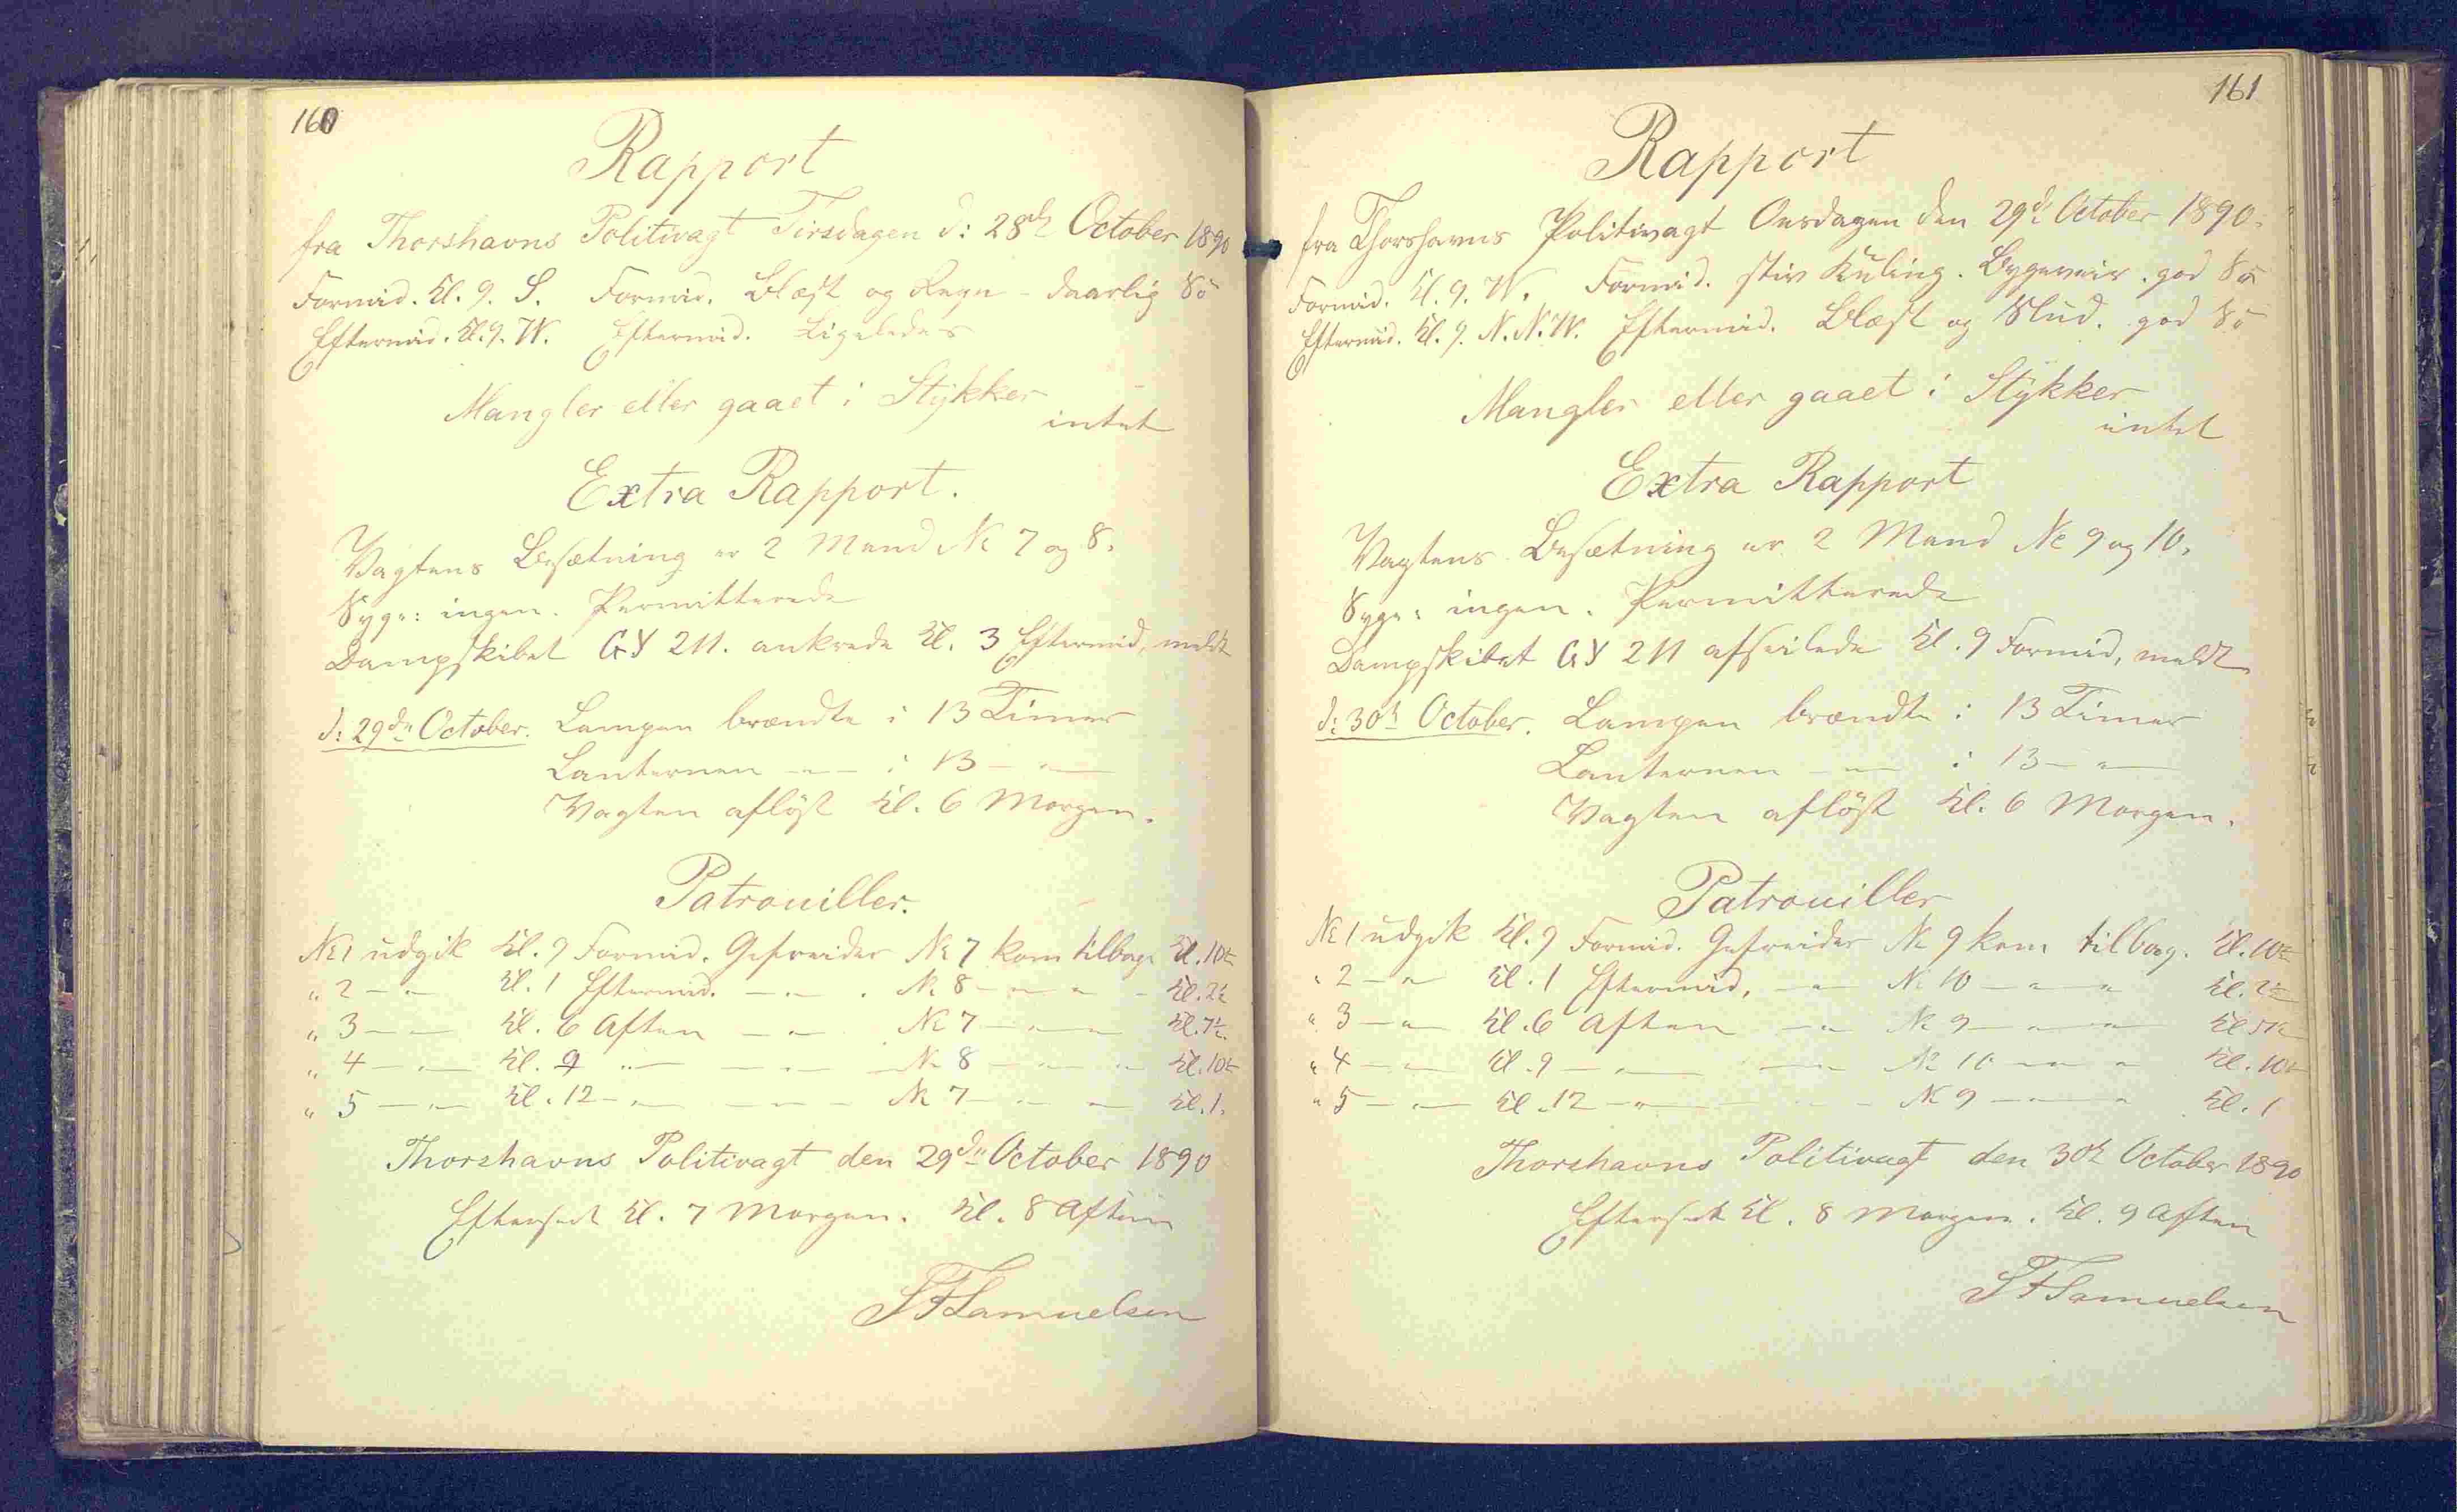 160
Rapport
fra Thorshavns Politivagt Tirsdagen d: 28de October 1890
Formid. Kl. 9. S. Formid. Blæst og Regn - daarlig Sö
Eftermid. Kl. 9. W. Eftermid. Ligeledes
Mangler eller gaaet i Stÿkker
intet
Extra Rapport.
Vagtens Besætning er 2 Mand No 7 og 8.
Syge: ingen. Permitterede
Dampskibet GY 211. ankrede Kl. 3 Eftermid, meldt
d: 29de October. Lampen brændte i 13 Timer
Lanternen — " — i 13 — " —
Vagten aflöst Kl. 6 Morgen.
Patrouiller.
No 1 udgik Kl. 9 Formid. Gefreider No 7 kom tilbage Kl. 10½
" 2 — " — Kl. 1 Eftermid. — " — No 8 — " — " — Kl. 2½
" 3 — " — Kl. 6 Aften — " — No 7 — " — " — Kl. 7½
" 4 — " — Kl. 9 — " — — " — No 8 — " — " — Kl. 10½
" 5 — " — Kl. 12 — " — — " — No 7 — " — " — Kl. 1.
Thorshavns Politivagt den 29de October 1890
Efterseet Kl. 7 Morgen. Kl. 8 Aften
Samuelsen
161
Rapport
fra Thorshavns Politivagt Onsdagen den 29de October 1890.
Formid. Kl. 9. W. Formid. stiv Kuling. Bygeveir. god Sö
Eftermid. Kl. 9. N.N.W. Eftermid. Blæst og Slud. god Sö
Mangler eller gaaet i Stÿkker
intet
Extra Rapport
Vagtens Besætning er 2 Mand No 9 og 10.
Syge: ingen. Permitterede
Dampskibet GY 211 afseilede Kl. 9 Formid, meldt
d: 30te October. Lampen brændte i 13 Timer
Lanternen — " — i 13 — " —
Vagten aflöst Kl. 6 Morgen.
Patrouiller
No 1 udgik Kl. 9 Formid. Gefreider No 9 kom tilbag. Kl. 10½
" 2 — " — Kl. 1 Eftermid, — " — No 10 — " — " Kl. 2½
" 3 — " — Kl. 6 Aften — " — No 9 — " — " — Kl.
" 4 — " — Kl. 9 — " — — " — No 10 — " — " Kl. 10½
" 5 — " — Kl. 12 — " — — " — No 9 — " — " Kl. 1
Thorshavns Politivagt den 30te October 1890
Efterseet Kl. 8 Morgen. Kl. 9 Aften
Samuelsen